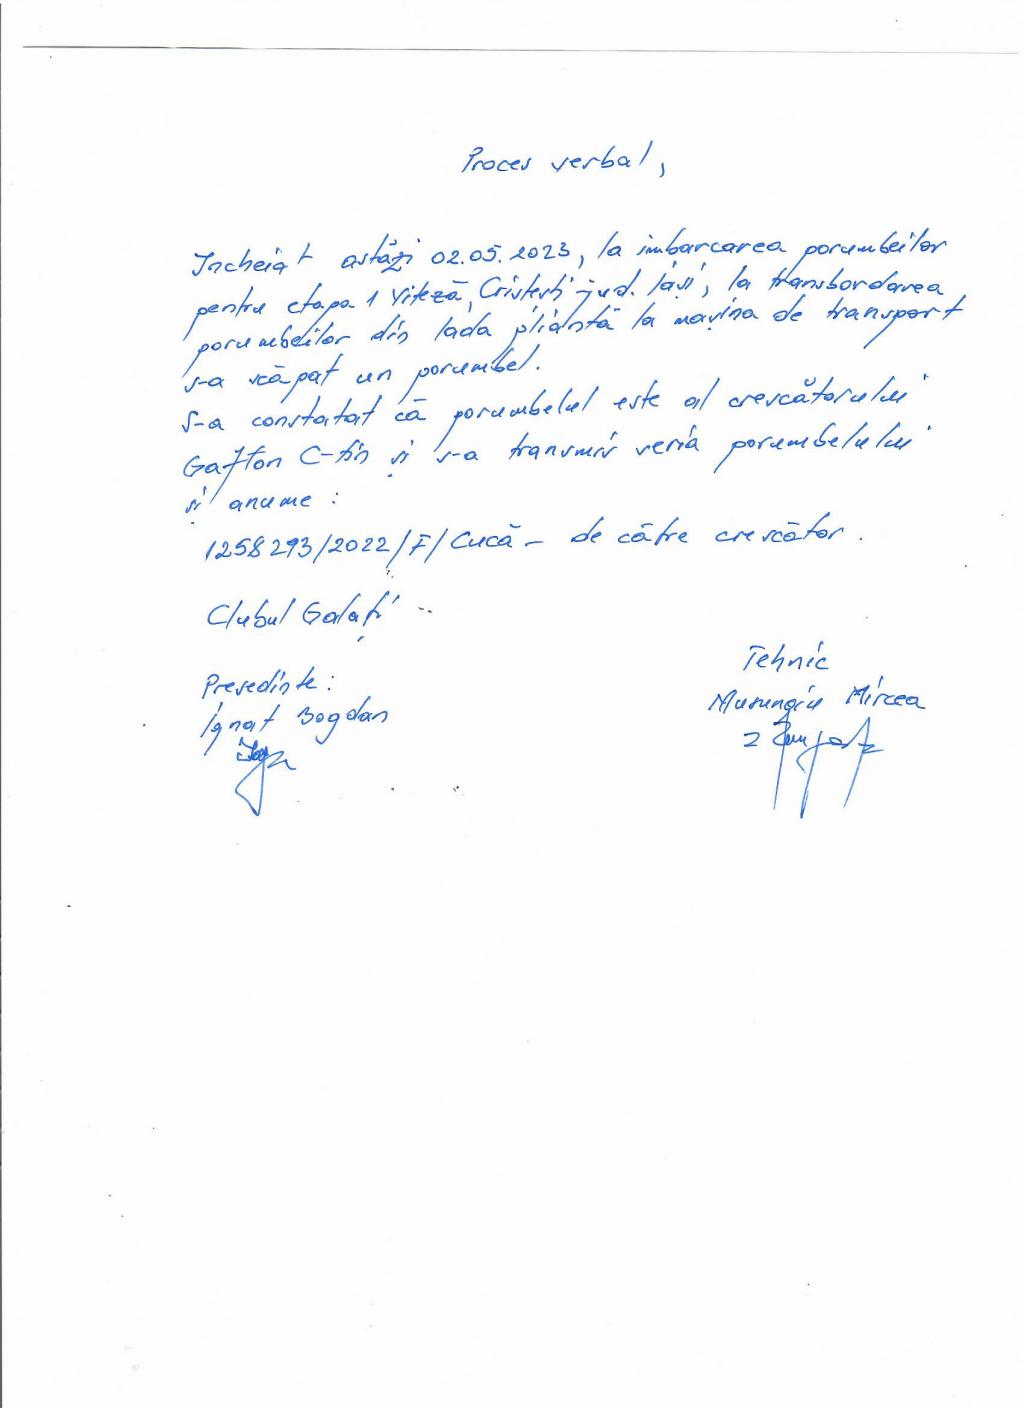 Proces verbal,
Incheiat astăzi 02.05.2023, la imbarcarea porumbeilor
pentru etapa 1 Viteză, Cristești jud. Iași, la transbordarea
porumbeilor din lada pliantă la mașina de transport
s-a scăpat un porumbel.
S-a constatat că porumbelul este al crescătorului
Gafton C-tin și s-a transmis seria porumbelului
și anume :
1258293/2022/F/Cucă - de către crescător.
Clubul Galați
Tehnic
Presedinte:
Murungiu Mircea
Ignat Bogdan